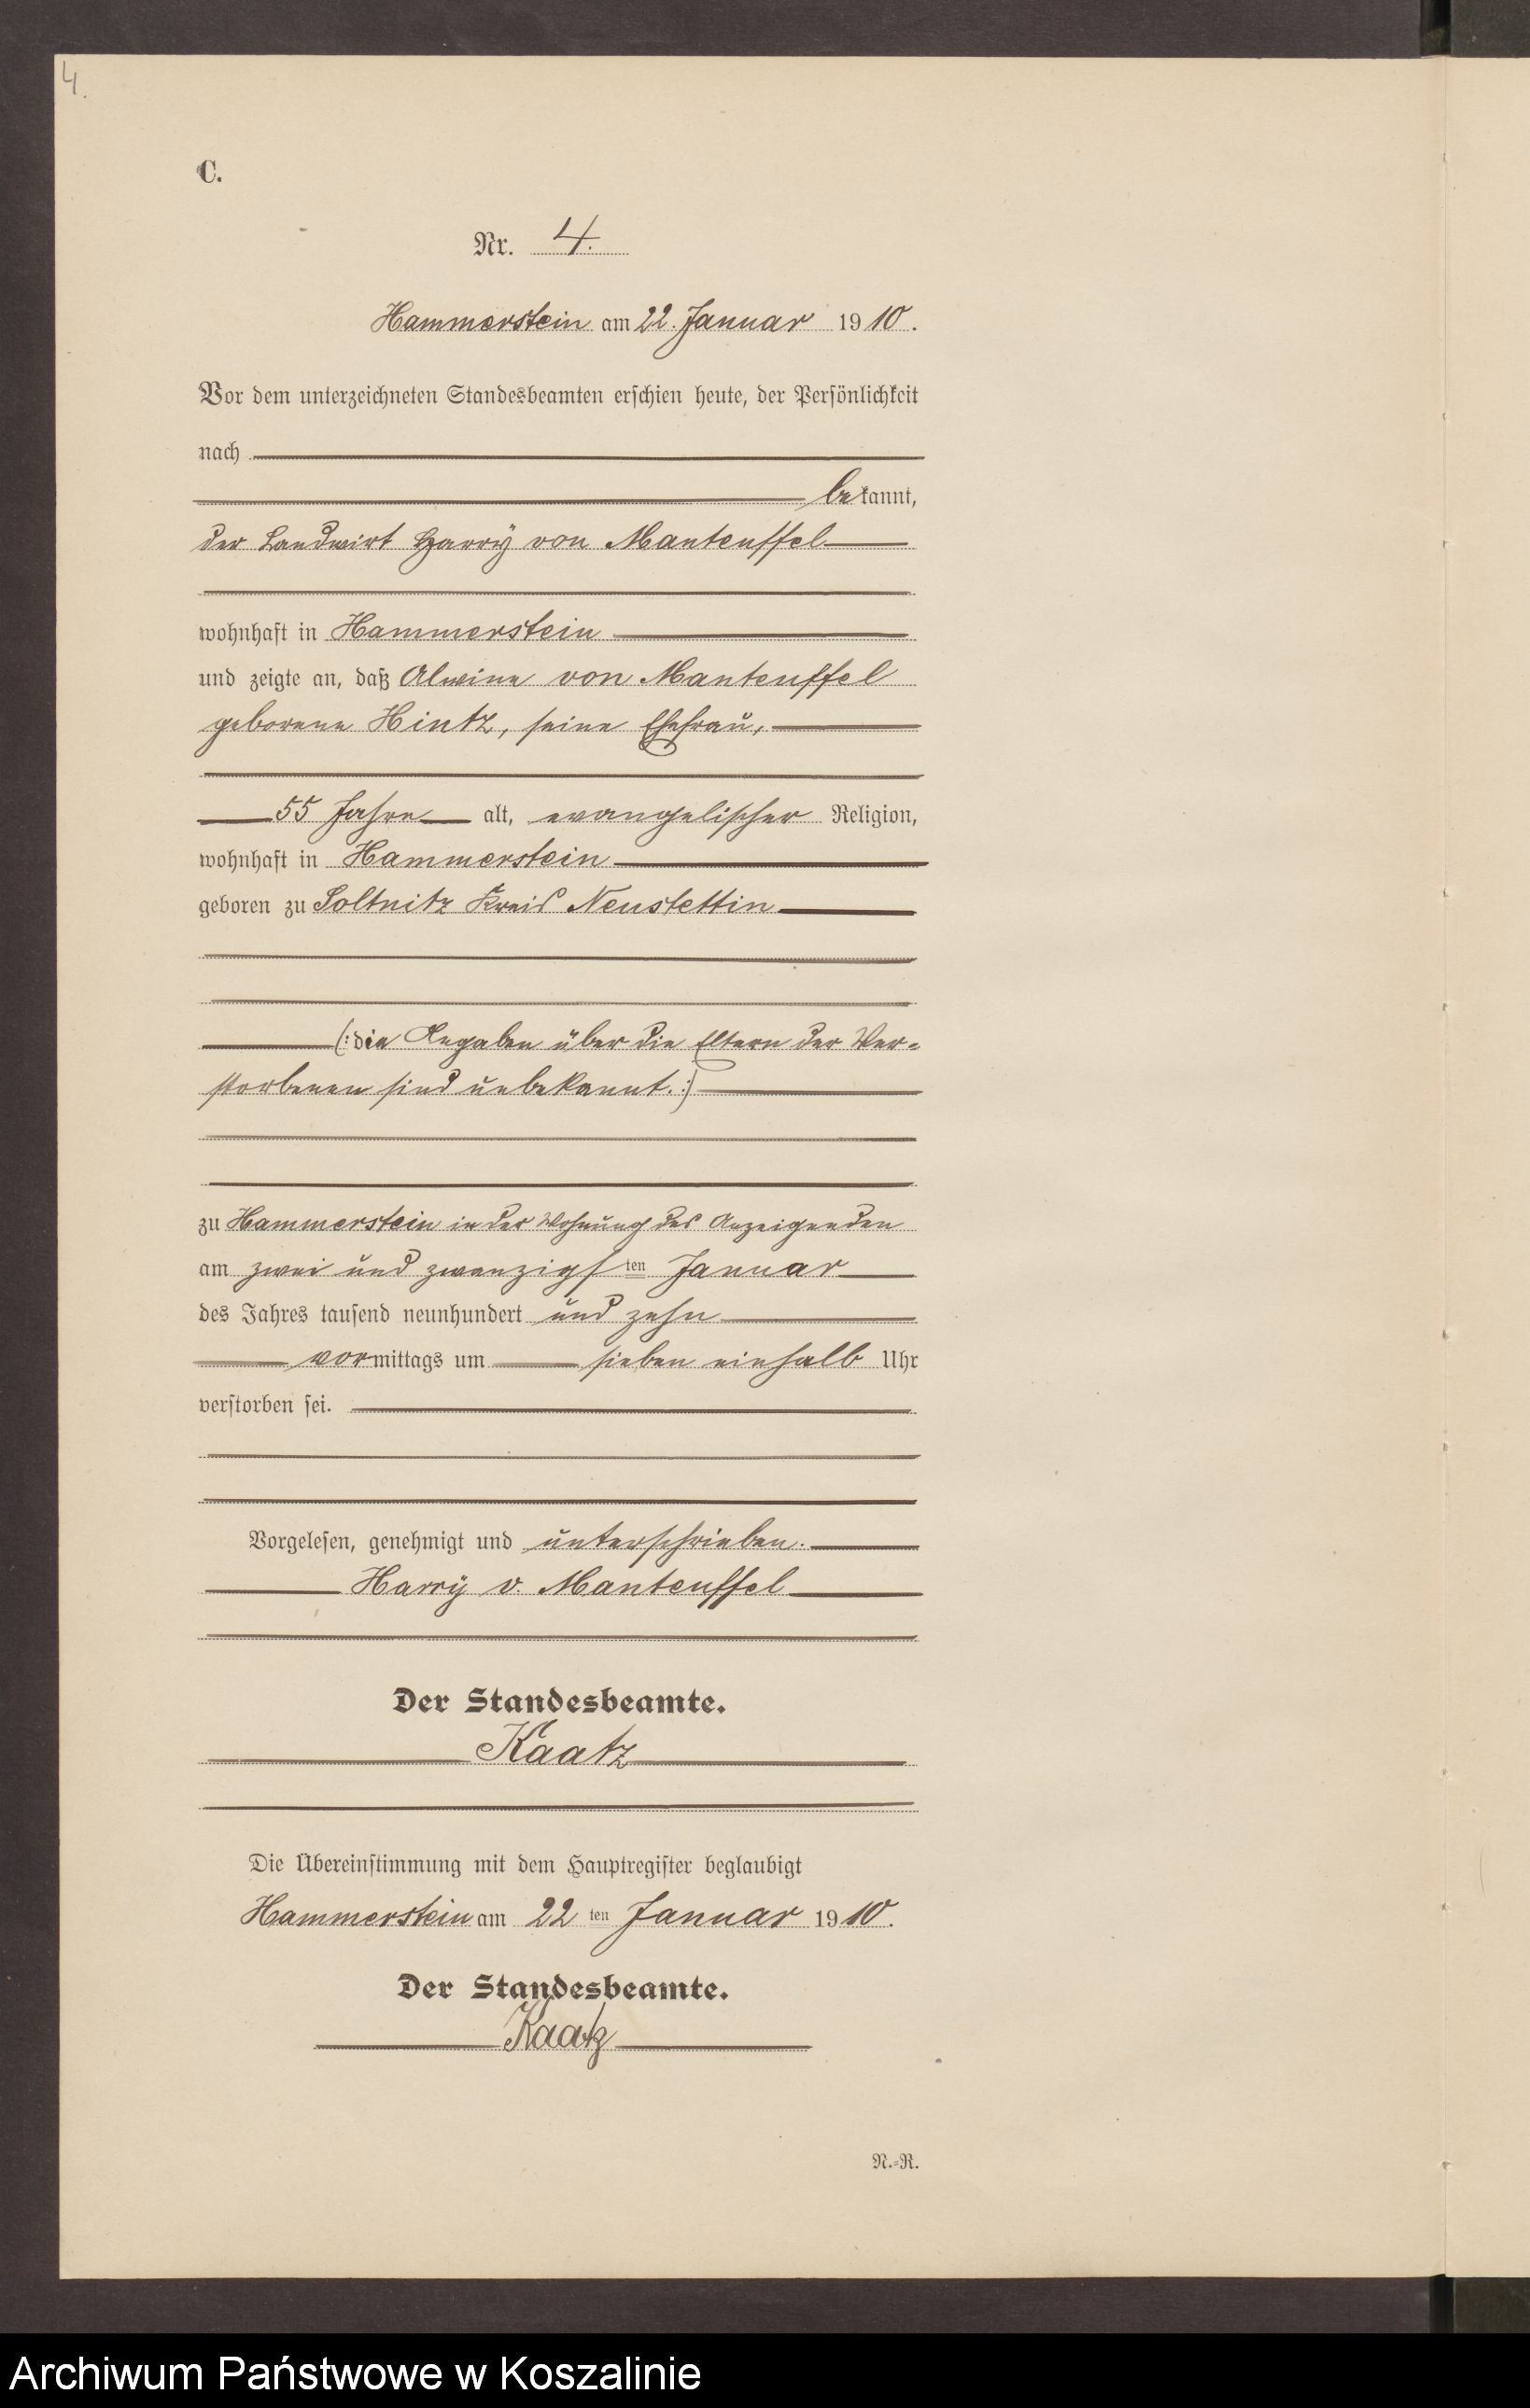 4.
C.
Nr. 4.
Hammerstein am 22. Januar 1910.
Vor dem unterzeichneten Standesbeamten erschien heute, der Persönlichkeit
nach
bekannt,
der Landwirt Harrÿ von Manteuffel
wohnhaft in Hammerstein
und zeigte an, daß Alwine von Manteuffel
geborene Hintz, seine Ehefrau,
55 Jahre alt, evangelischer Religion,
wohnhaft in Hammerstein
geboren zu Soltnitz Kreis Neustettin
(: die Angaben über die Eltern der Ver-
storbenen sind unbekannt. :)
zu Hammerstein in der Wohnung des Anzeigenden
am zwei und zwanzigsten Januar
des Jahres tausend neunhundert und zehn
vormittags um sieben einhalb Uhr
verstorben sei.
Vorgelesen, genehmigt und unterschrieben.
Harrÿ v. Manteuffel
Der Standesbeamte.
Kaatz
Die Übereinstimmung mit dem Hauptregister beglaubigt
Hammerstein am 22 ten Januar 1910.
Der Standesbeamte.
Kaatz
N.-R.
Archiwum Państwowe w Koszalinie